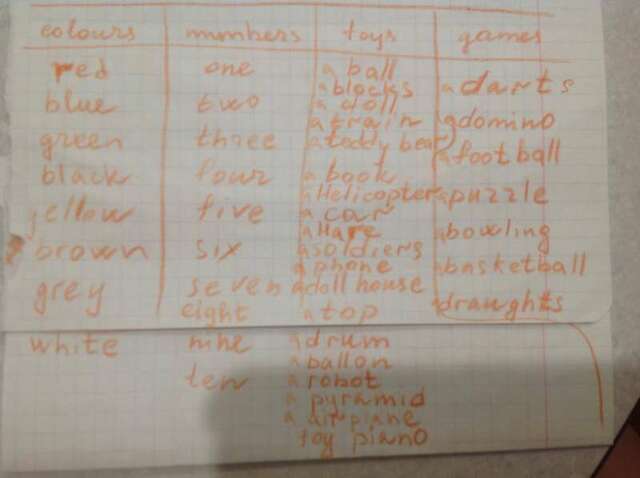 colours numbers toys games
red one a ball
a blocks a darts
blue two a doll
a train a domino
green three a teddy bear
a football
black four a book
a Helicopter a puzzle
yellow five a car
a Hare a bowling
brown six a soldiers
a phone a basketball
grey seven a doll house
eight a top a draughts
white nine a drum
a ballon
ten a robot
a pyramid
a airplane
toy piano